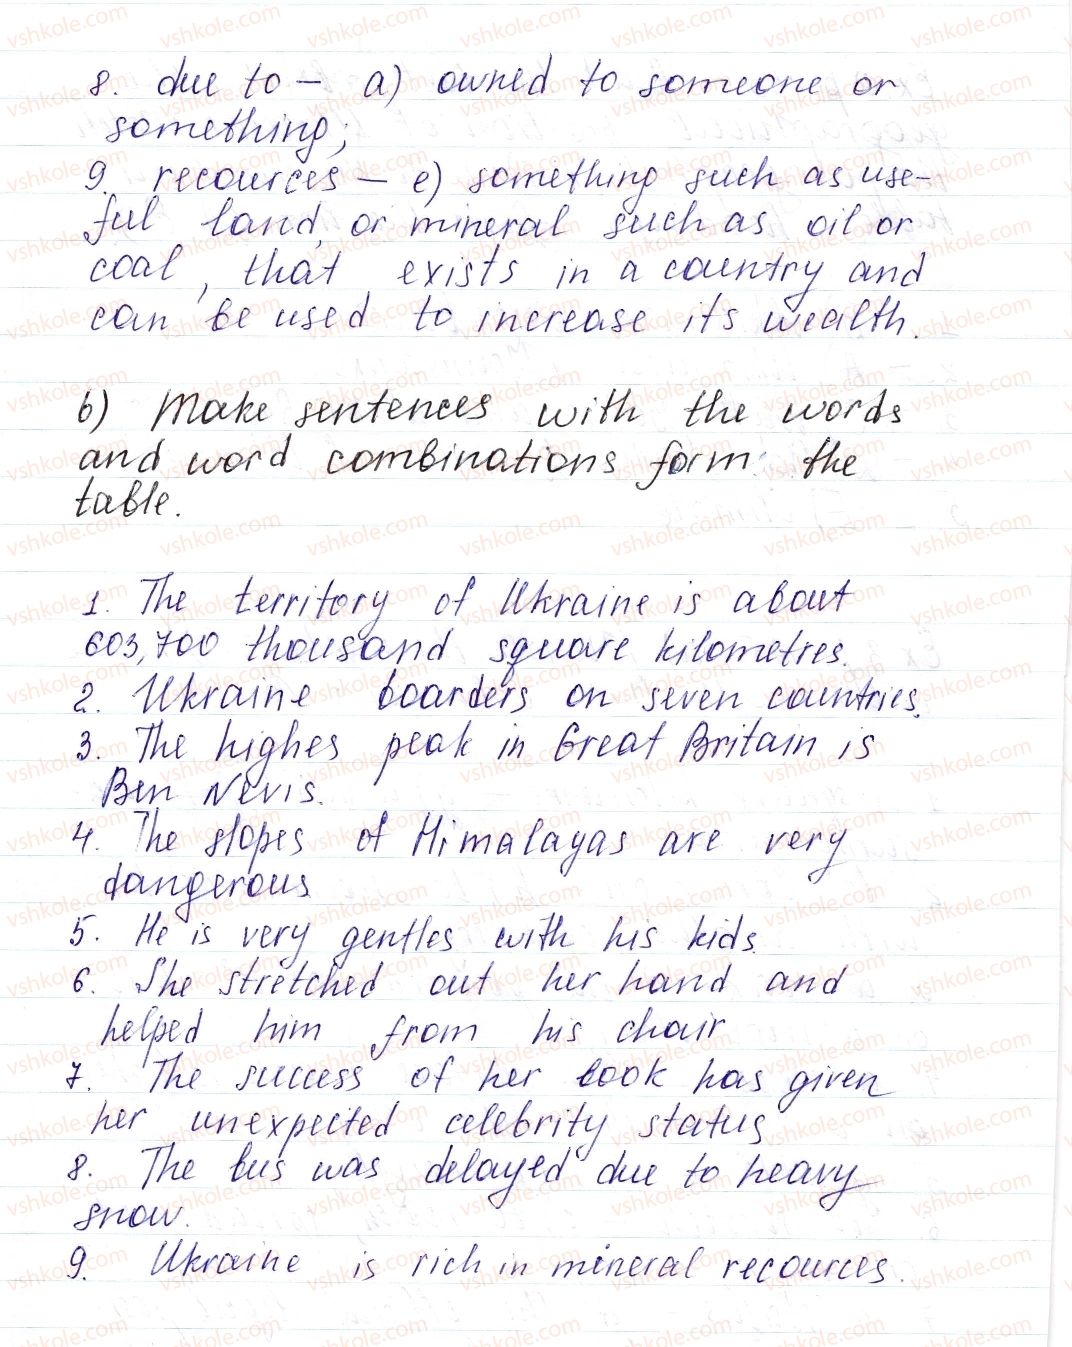 8. due to – a) owned to someone or
something;
9. recources – e) something such as use-
ful land, or mineral such as oil or
coal, that exists in a country and
can be used to increase its wealth.
b) Make sentences with the words
and word combinations form the
table.
1. The territory of Ukraine is about
603,700 thousand square kilometres.
2. Ukraine boarders on seven countries.
3. The highes peak in Great Britain is
Ben Nevis.
4. The slopes of Himalayas are very
dangerous
5. He is very gentles with his kids.
6. She stretched out her hand and
helped him from his chair
7. The success of her book has given
her unexpected celebrity status
8. The bus was delayed due to heavy
snow.
9. Ukraine is rich in mineral recources.